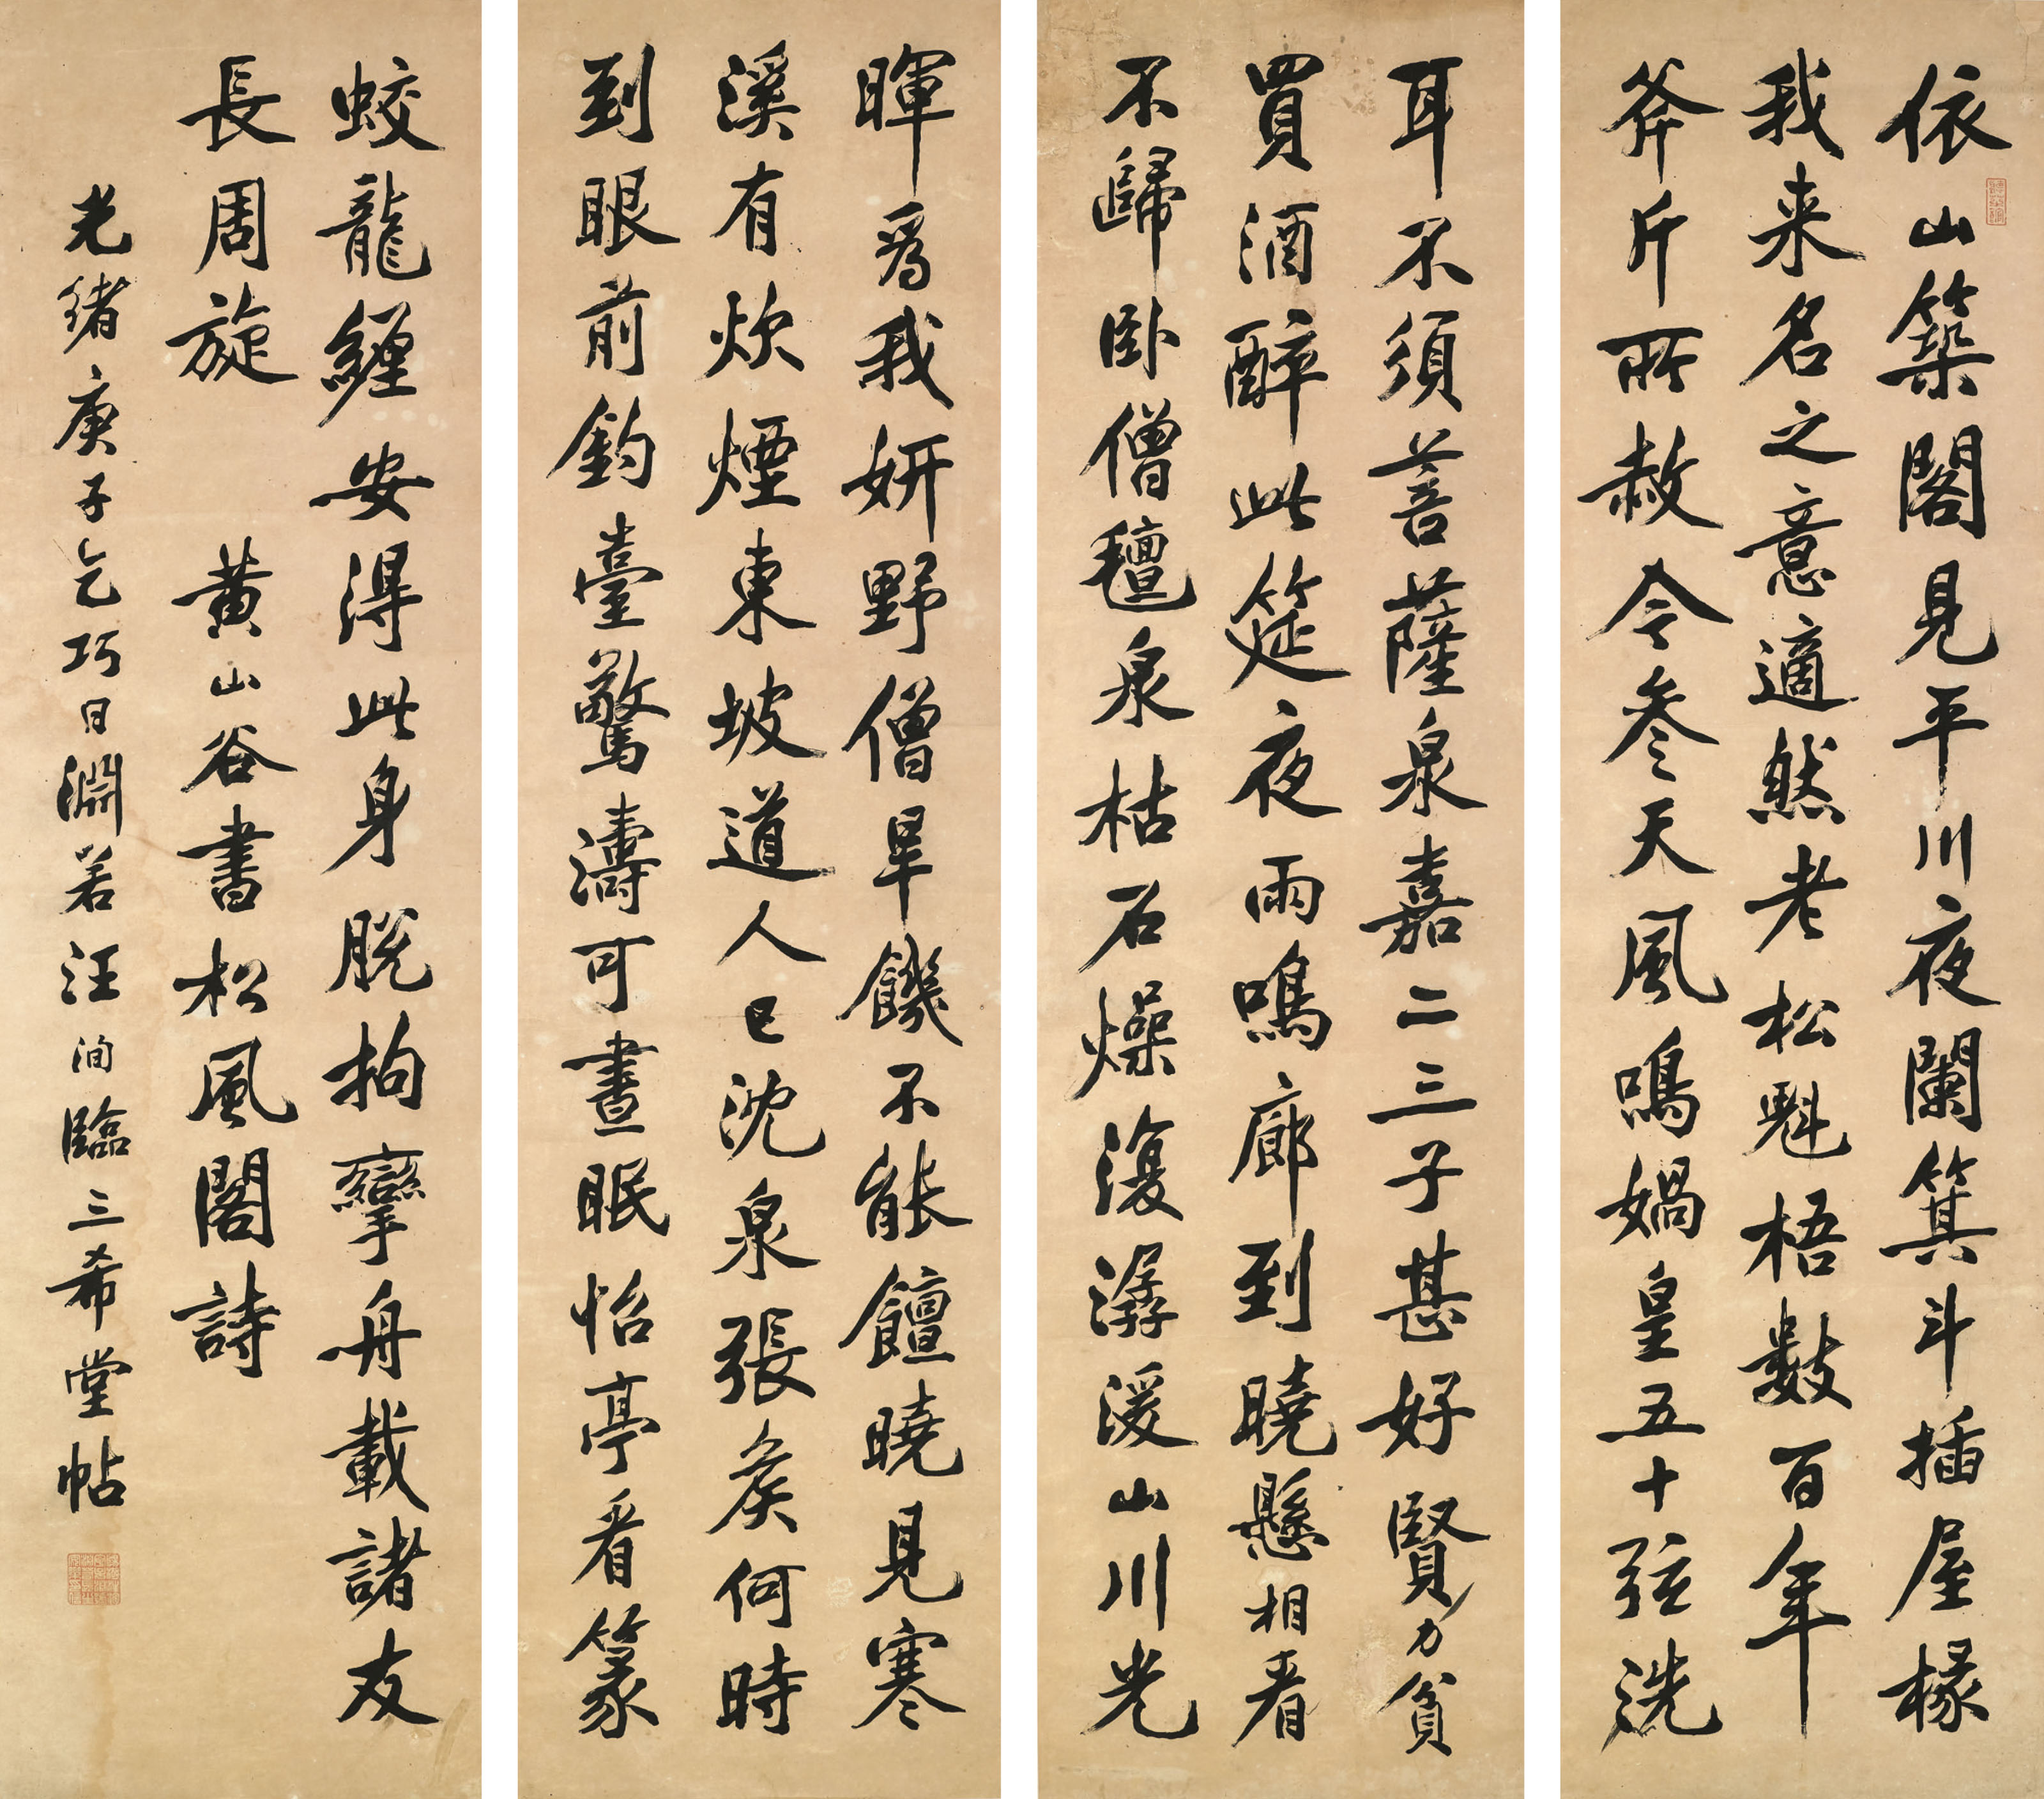 依山築閣見平川夜闌箕斗插屋椽
我来名之意適然老松魁梧數百年
斧斤所赦令參天風鳴媧皇五十弦洗
耳不須菩薩泉嘉二三子甚好賢力貧
買酒醉此筵夜雨鳴廊到曉懸相看
不歸卧僧氊泉枯石燥復潺湲山川光
暉為我妍野僧旱饑不能饘曉見寒
溪有炊煙東坡道人已沈泉張矦何時
到眼前釣臺驚濤可晝眠怡亭看篆
蛟龍纏安得此身脱拘攣舟載諸友
長周旋 黄山谷書松風閣詩
光緒庚子乞巧日淵若汪洵臨三希堂帖